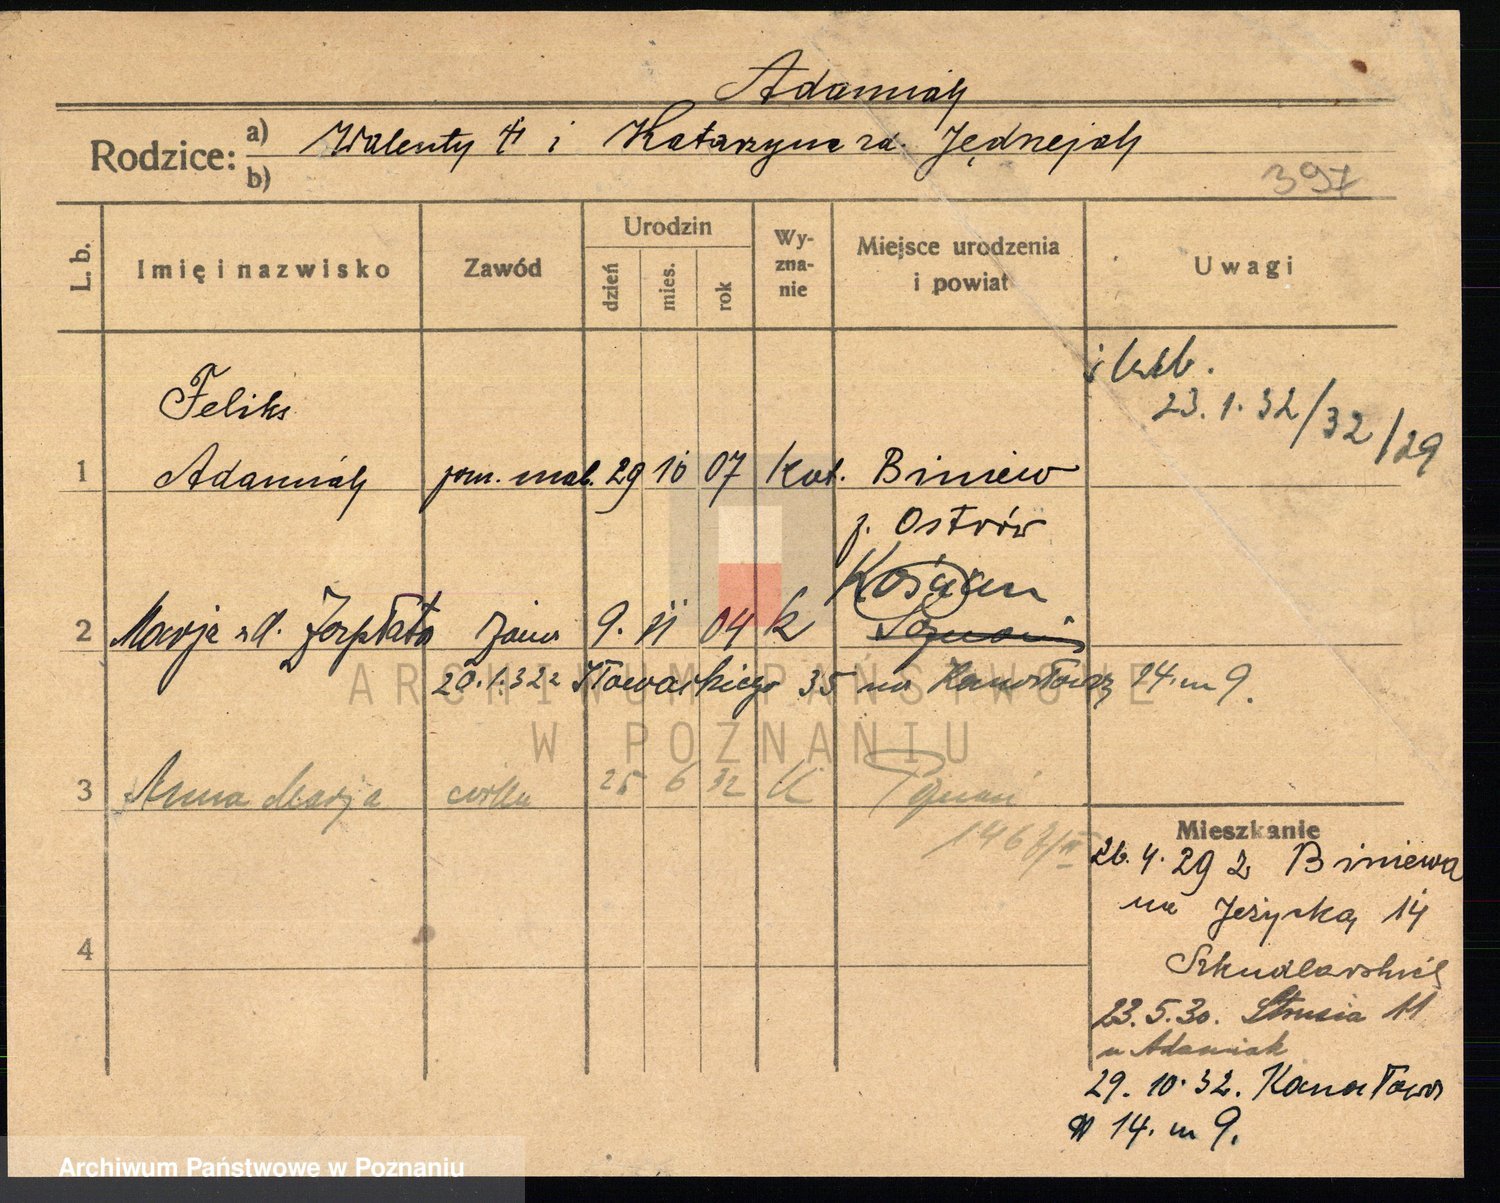 Adamiak
Rodzice: a) Walenty i Katarzyna zd. Jędrzejak
b)
397
L. b. Imię i nazwisko Zawód Urodzin dzień mies. rok Wy-zna-nie Miejsce urodzenia i powiat Uwagi
23.1.32/32/29
Feliks
1 Adamiak pom. mal. 29 10 07 Kat. Biniew
p. Ostrów
Kościan
2 Marja zd. żona 9. 04 k Poznań
20.1.32 z Słowackiego 35 na Kanałową 14. m 9.
3 Anna Marja córka 25 6 32 K Poznań
1463/II
4
Mieszkanie
26.4.29 z Biniewa
na Jeżycką 14
23.5.30. Strusia 11
u Adamiak
29.10.32. Kanałowa
14. m 9.
ARCHIWUM PAŃSTWOWE
W POZNANIU
Archiwum Państwowe w Poznaniu